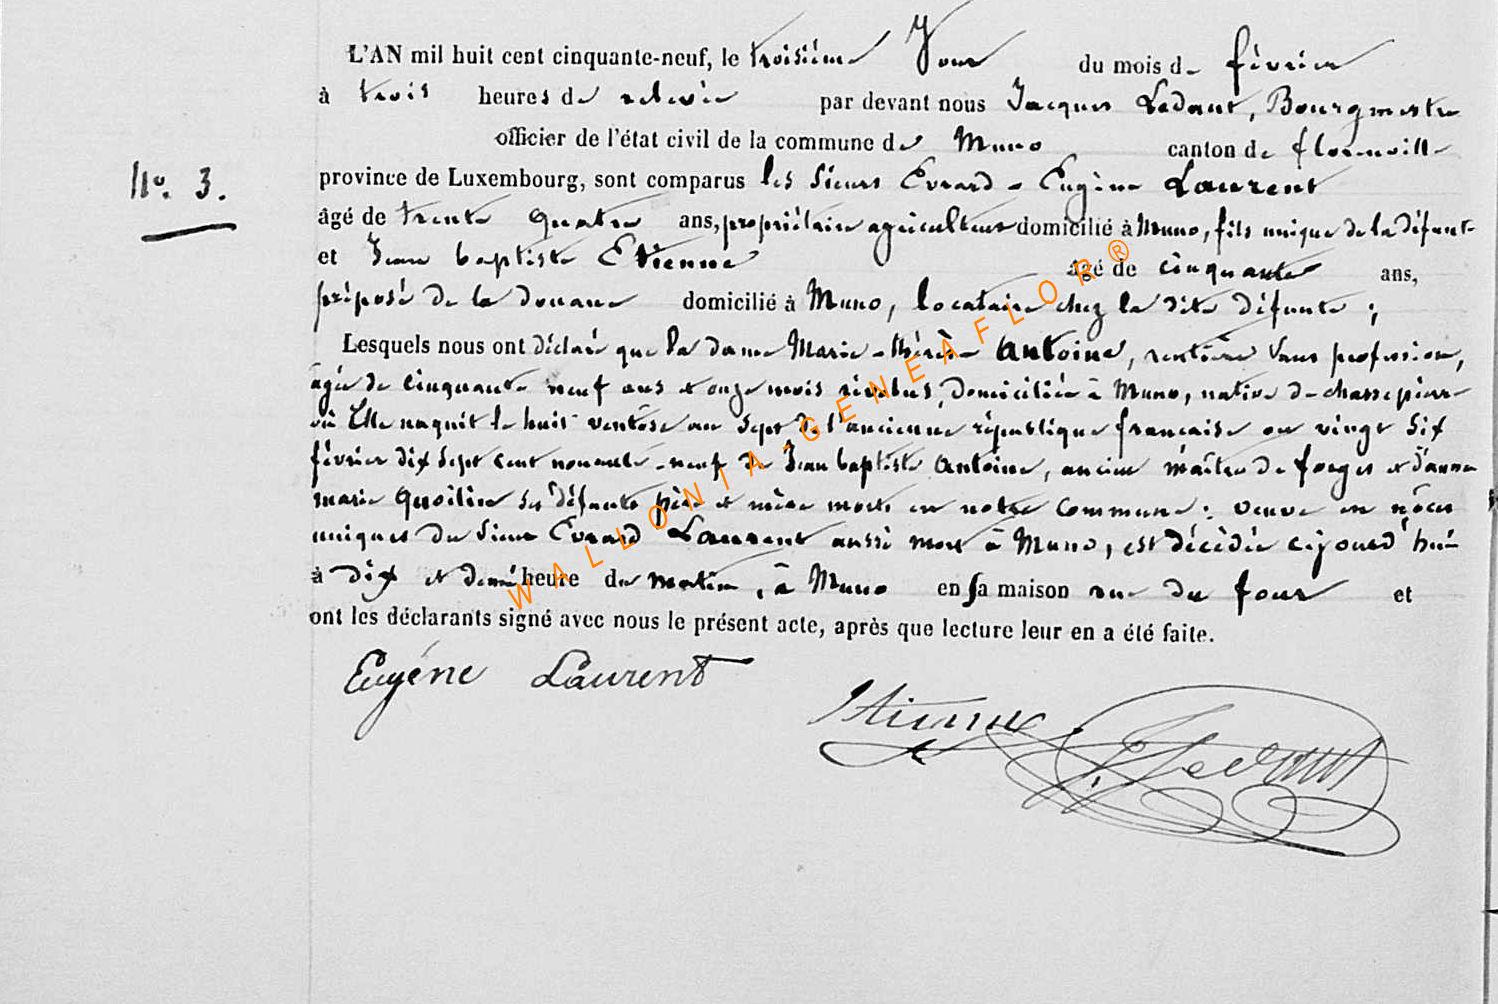 L'AN mil huit cent cinquante-neuf, le troisième Jour du mois de février
à trois heures de relevée par devant nous Jacques Ledant, Bourgmestre
officier de l'état civil de la commune de Muno canton de florenville
N°. 3.
province de Luxembourg, sont comparus les Sieurs Evrard - Eugène Laurent
âgé de trente quatre ans, propriétaire agriculteur domicilié à Muno, fils unique de la défunte
et Jean baptiste Etienne âgé de cinquante ans,
préposé de la douane domicilié à Muno, locataire chez la dite défunte ;
Lesquels nous ont déclaré que la dame Marie-thérèse Antoine, rentière sans profession,
âgée de cinquante neuf ans et onze mois révolus, domiciliée à Muno, native de chassepierre
où Elle naquit le huit ventôse an sept de l'ancienne république française ou vingt six
février dix sept cent nonante-neuf de Jean baptiste Antoine, ancien maître de forges et d'anne
marie Quoilin ses défunts père et mère morts en notre commune : veuve en nôces
uniques du Sieur Evrard Laurent aussi mort à Muno, est décédée cejourd'hui
à dix et demi heure du matin, à Muno en sa maison rue du four et
ont les déclarants signé avec nous le présent acte, après que lecture leur en a été faite.
Eugéne Laurent
Etienne
J Ledant
WALLONIA-GENEAFLOR®